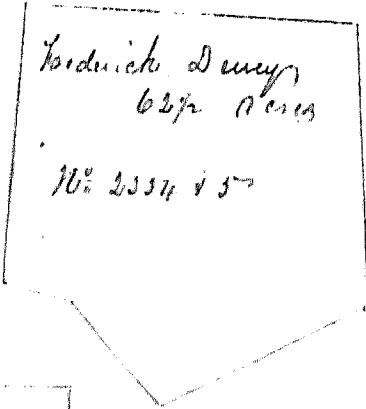 Frederick Dewey
62½ Acres
No: 2334 & 5